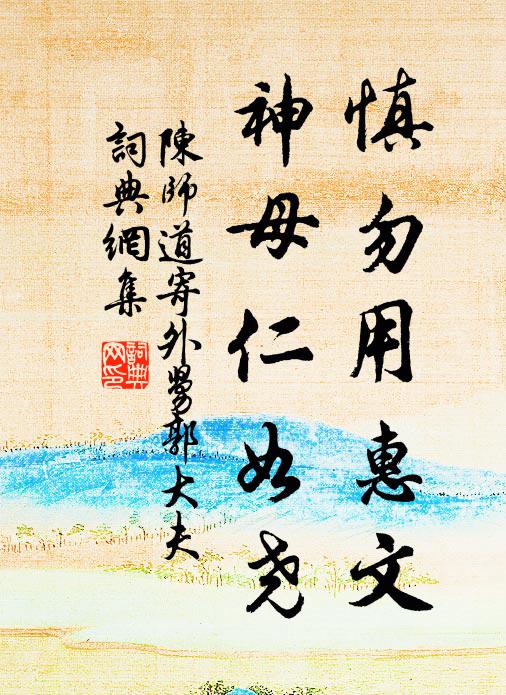 慎勿用惠文
神母仁如堯
陳師道寄外舅郭大夫
詞典網集
詞典
网印